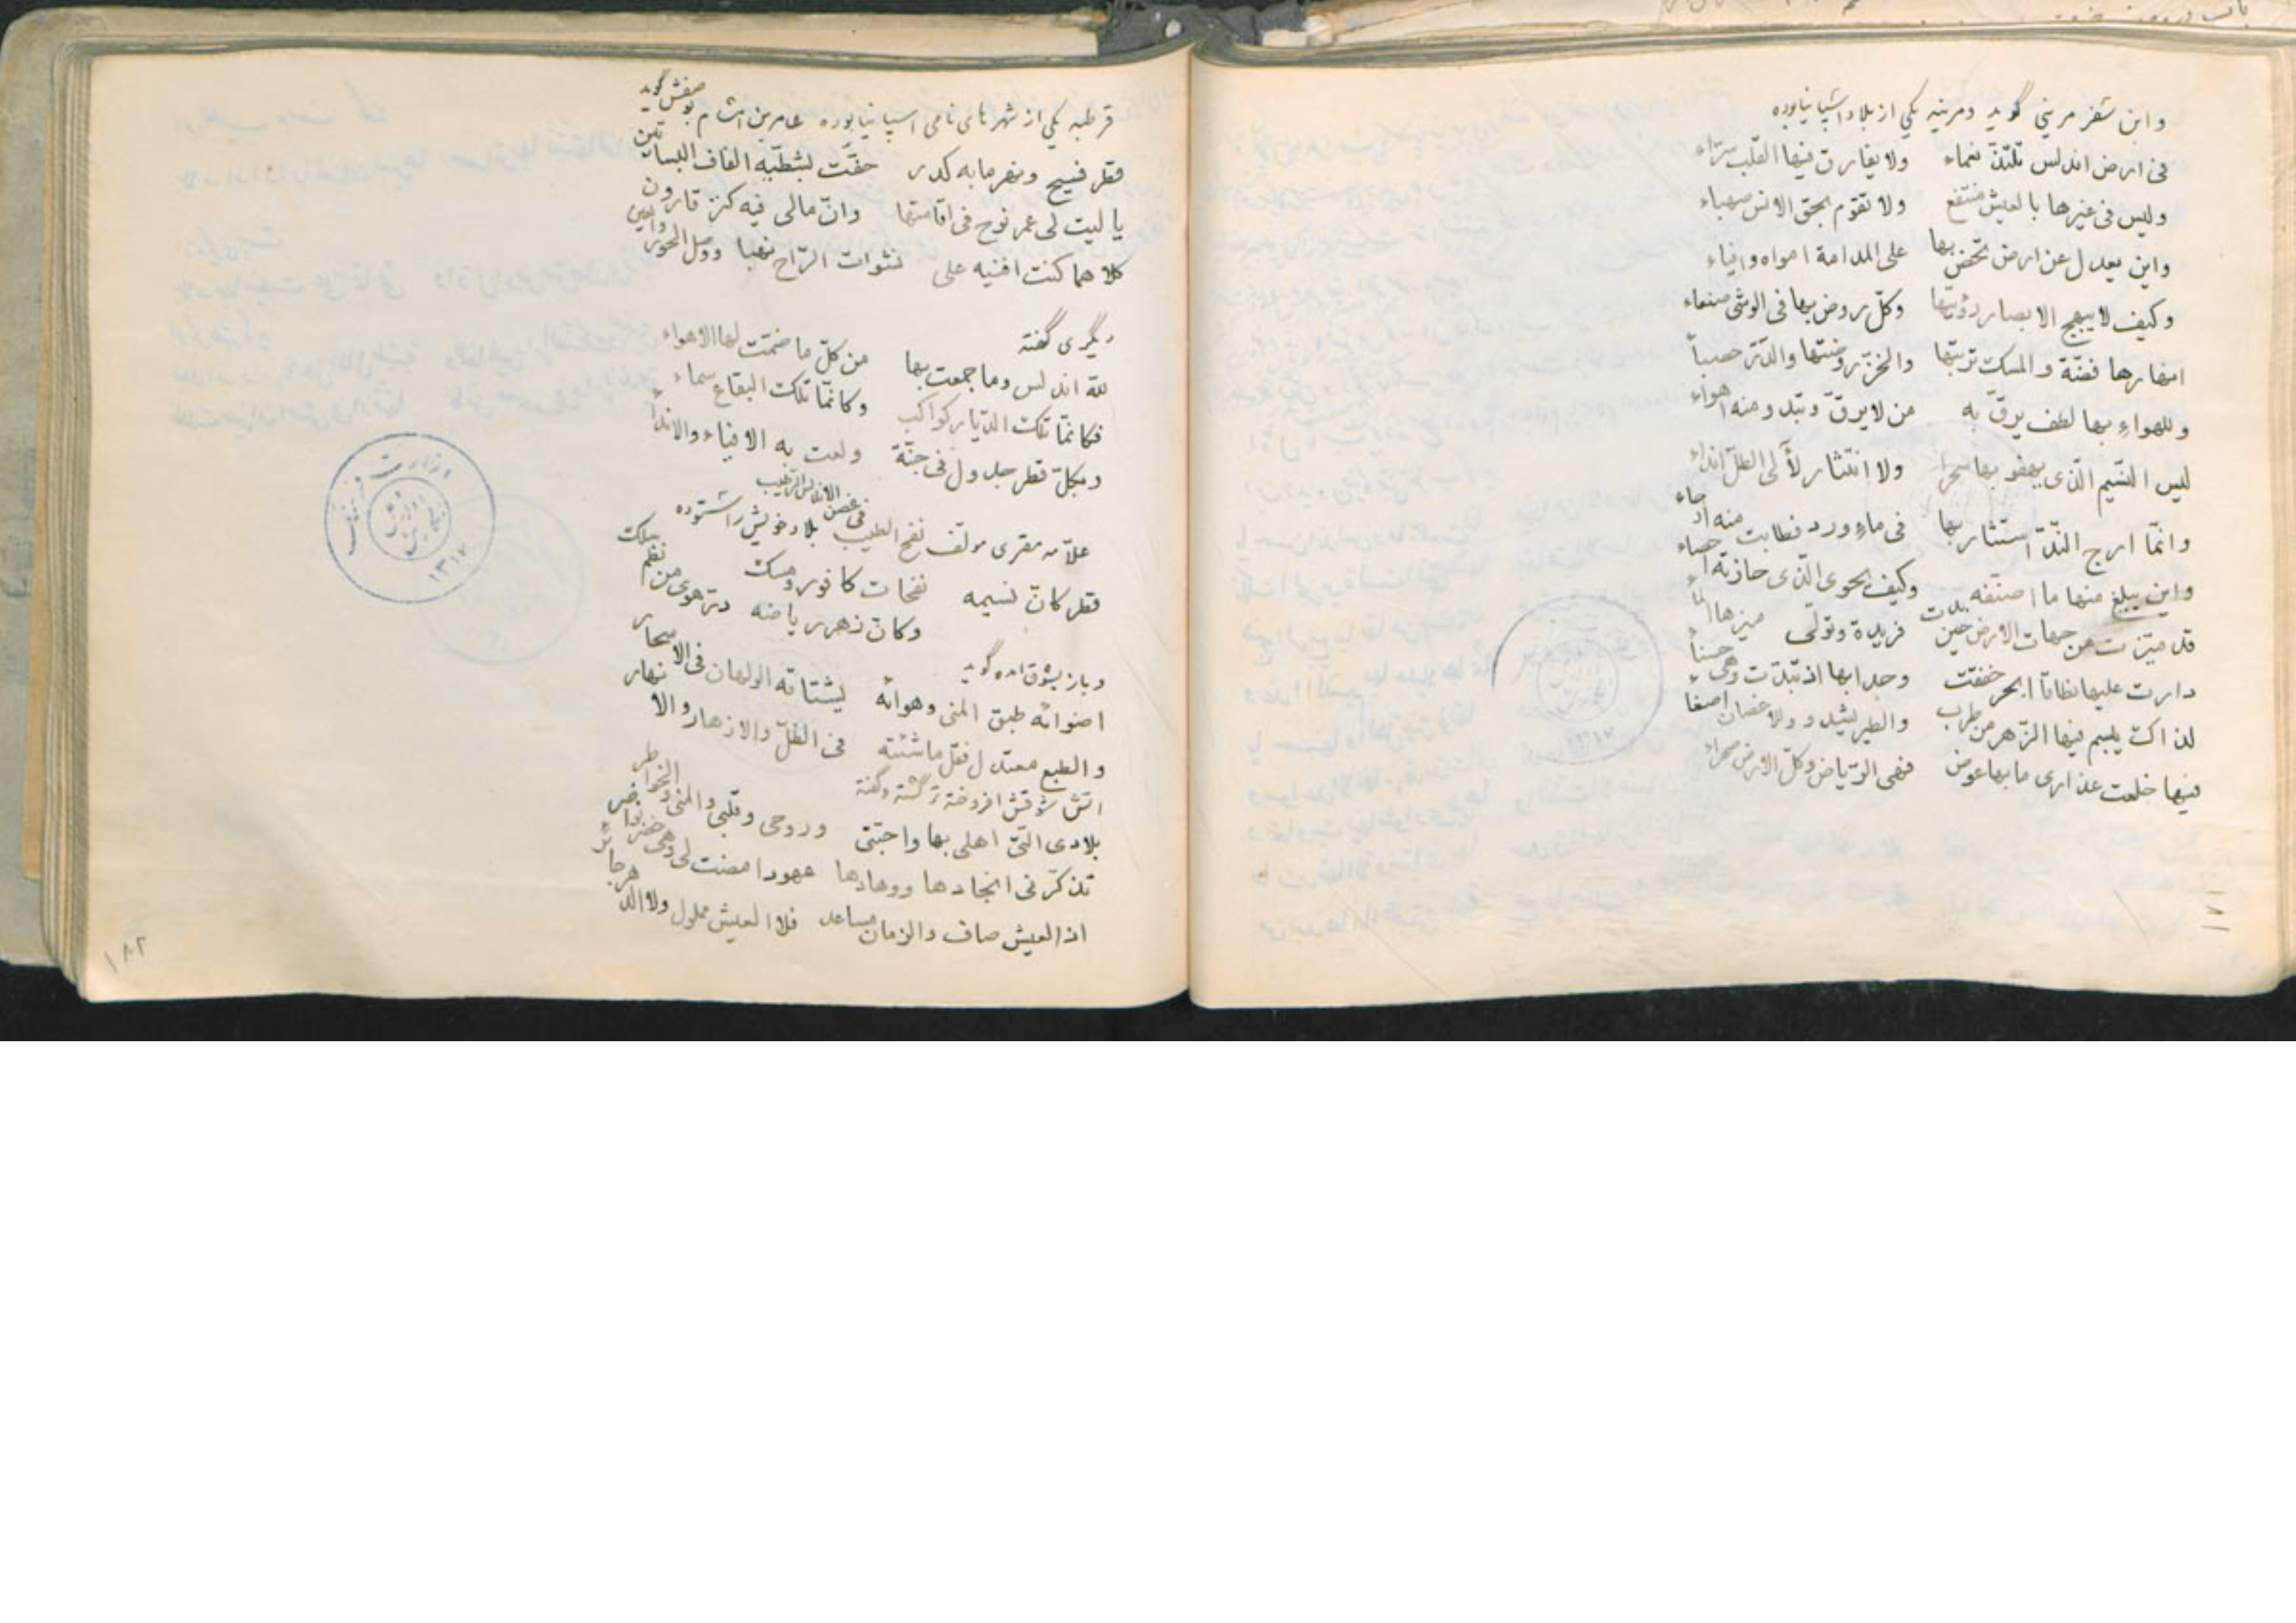 وابن سفر مرینی گوید ومرینه یکی از بلاد اسپانیا بوده
فی ارض اندلس تلتذّ نعماء ولا یفارق فیها القلب سرّاء
ولیس فی غیرها بالعیش منتفع ولا تقوم بحق الانس صهباء
واین یعدل عن ارض تحضّ بها علی المدامة امواه وافیاء
وکیف لا یبهج الابصار رؤیتها وکلّ روض بها فی الوشی صنعاء
انهارها فضّة والمسک تربتها والخزّ روضتها والدّر حصباً
وللهواءِ بها لطف یرقّ به من لا یرقّ وتبد ومنه اهواء
لیس النسّیم الّذی یهفو بها سحرا ولا انتثار لأ لی الطلّ انداء
وانمّا ارج النّدّ استثار بها فی ماءِ ورد فطابت منه ارجاء
واین یبلغ منها ما اصنّفه وکیف یحوی الّذی حازته احصاء
قد میّزت من جهات الارض حین بدت فریدة وتولّی میزها الماء
دارت علیها نطاقاً ابحر خفقت وجدا بها اذ تبدّت وهی حسناً
لذاک یبسم فیها الزّهر من طرب والطیر یشدو وللاغصان اصغاء
فیها خلعت عذاری ما بها عوض فهی الرّیاض وکلّ الارض صحراء
۱۸۱
قرطبه یکی از شهر های نامی اسپانیا بوده عامر بن هشام بوصفش گوید
قطر فسیح ونهر ما به کدر حفّت بشطّیه الفاف البساتین
یا لیت لی عمر نوح فی اقامتها وانّ مالی فیه کنز قارون
کلاهما کنت افنیه علی نشوات الرّاح نهبا ووصل الحور والعین
دیگری گفته
للّه اندلس وما جمعت بها من کلّ ما ضمّت لها الاهواء
فکانمّا تلک الدّیار کواکب وکانمّا تلک البقاع سماء
وبکلّ قطر جدول فی جنّة ولعت به الافیاء والانداءُ
علاّمه مقری مولف نفح الطیب فی غصن الاندلس الرّطیب بلاد خویش را ستوده
قطر کانّ نسیمه نفحات کافور ومسک
وکانّ زهر ریاضه درّ هوی من نظم سلک
وباز بشوق امده گوید
اضوائه طبق المنی وهوائه یشتاقه الولهان فی الاسحار
والطبع معتدل فقل ما شئته فی الظلّ والازهار والانهار
اتش شوقش افروخته تر گشته وگفته
بلادی الّتی اهلی بها واحبّتی وروحی وقلبی والمنی والخواطر
تذکّر فی انجادها ووهادها عهودا مضت لی وهی خضر نواضر
اذ العیش صاف والزمان مساعد فلا العیش مملول ولا الدّهر جائر
۱۸۲
وزارت فرهنگ
۱۳۱۷